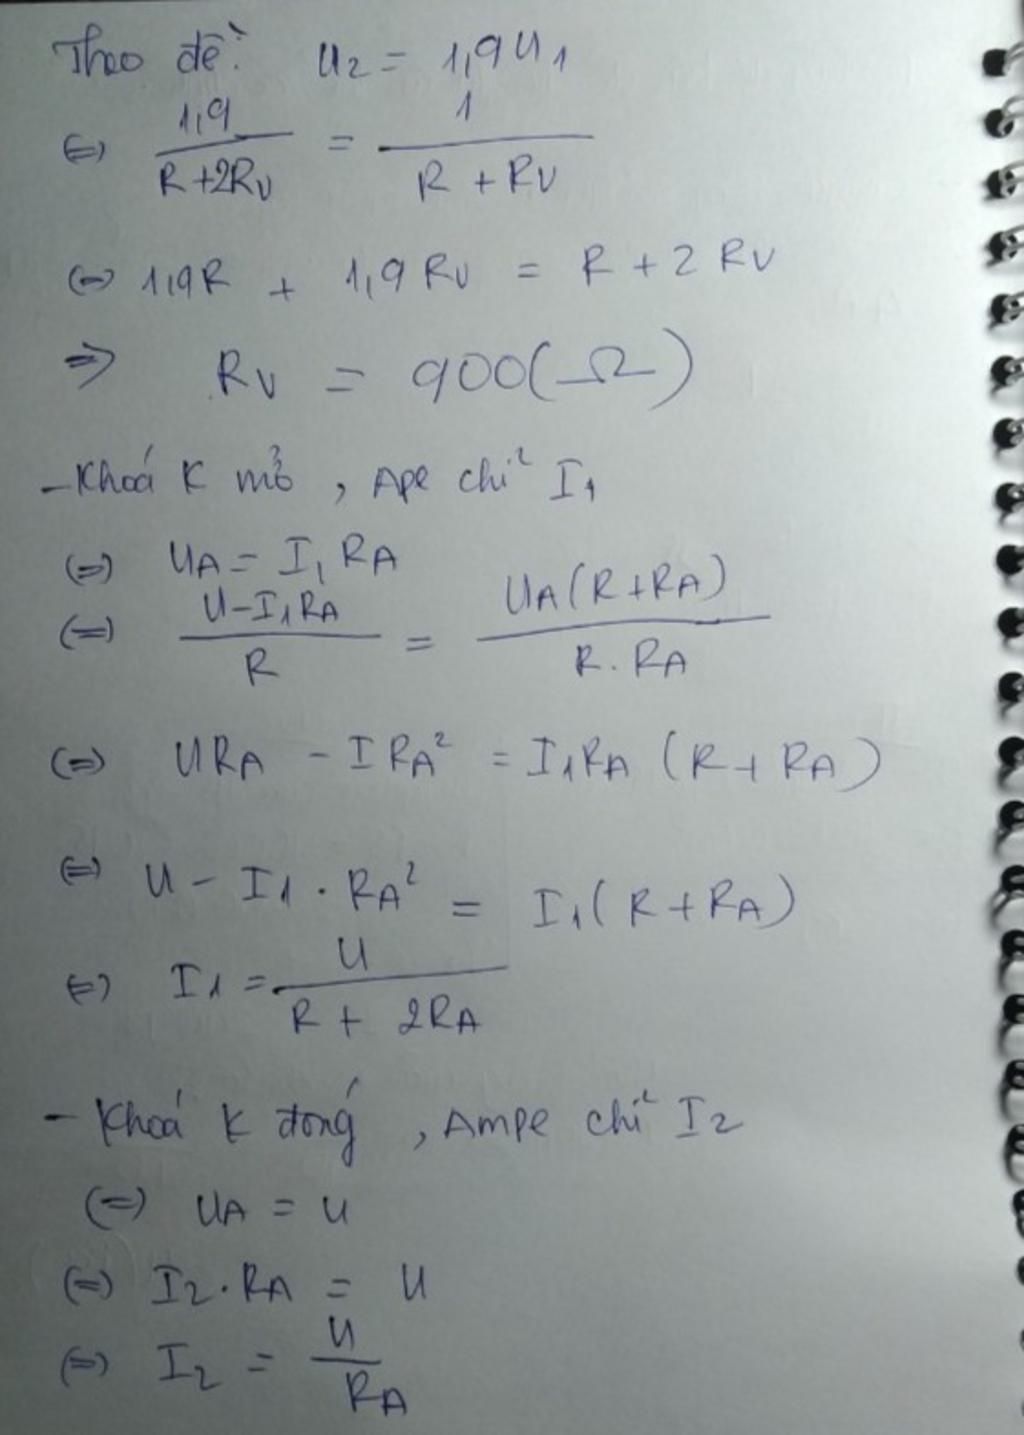 Theo đề: U2 = 1,9U1
(=) 1,9/(R+2RV) = 1/(R+RV)
(=) 1,9R + 1,9RV = R+2RV
=> RV = 900(Ω)
- Khoá K mở, Ape chỉ I1
(=) UA = I1RA
(=) (U-I1RA)/R = UA(R+RA)/(R.RA)
(=) URA - IRA² = I1RA (R+RA)
(=) U - I1.RA² = I1(R+RA)
(=) I1 = U/(R+2RA)
- Khoá K đóng, Ampe chỉ I2
(=) UA = U
(=) I2.RA = U
(=) I2 = U/RA